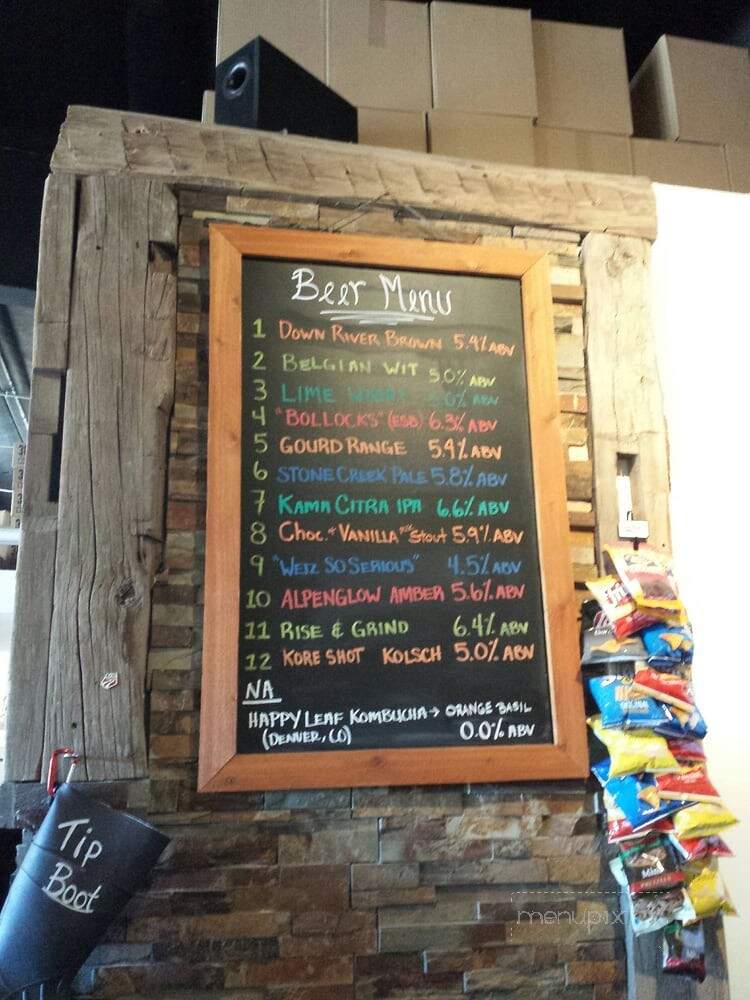 Beer Menu
1 DOWN RIVER BROWN 5.4% ABV
2 BELGIAN WIT 5.0% ABV
3 LIME 5.0% ABV
4 "BOLLOCKS" (ESB) 6.3% ABV
5 GOURD RANGE 5.4% ABV
6 STONE CREEK PALE 5.8% ABV
7 KAMA CITRA IPA 6.6% ABV
8 CHOC. + VANILLA MILK STOUT 5.9% ABV
9 "WEIZ SO SERIOUS" 4.5% ABV
10 ALPENGLOW AMBER 5.6% ABV
11 RISE & GRIND 6.4% ABV
12 KORE SHOT KOLSCH 5.0% ABV
NA
HAPPY LEAF KOMBUCHA → ORANGE BASIL
(DENVER, CO) 0.0% ABV
Tip
Boot
menupix